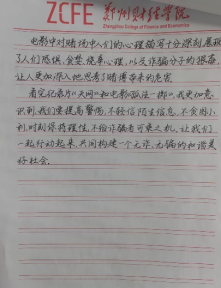 ZCFE 郑州财经学院
Zhengzhou College of Finance and Economics
电影中对赌场中人们的心理描写十分深刻,展现
了人们恐惧、贪婪、侥幸心理,以及诈骗分子的狠毒,
让人更加深入地思考了赌博带来的危害。
看完纪录片《天网》和电影《孤注一掷》,我更加意
识到,我们要提高警惕,不轻信陌生信息,不贪图小
利,时刻保持理性,不给诈骗者可乘之机,让我们
一起行动起来,共同构建一个无诈、无骗的和谐美
好社会。